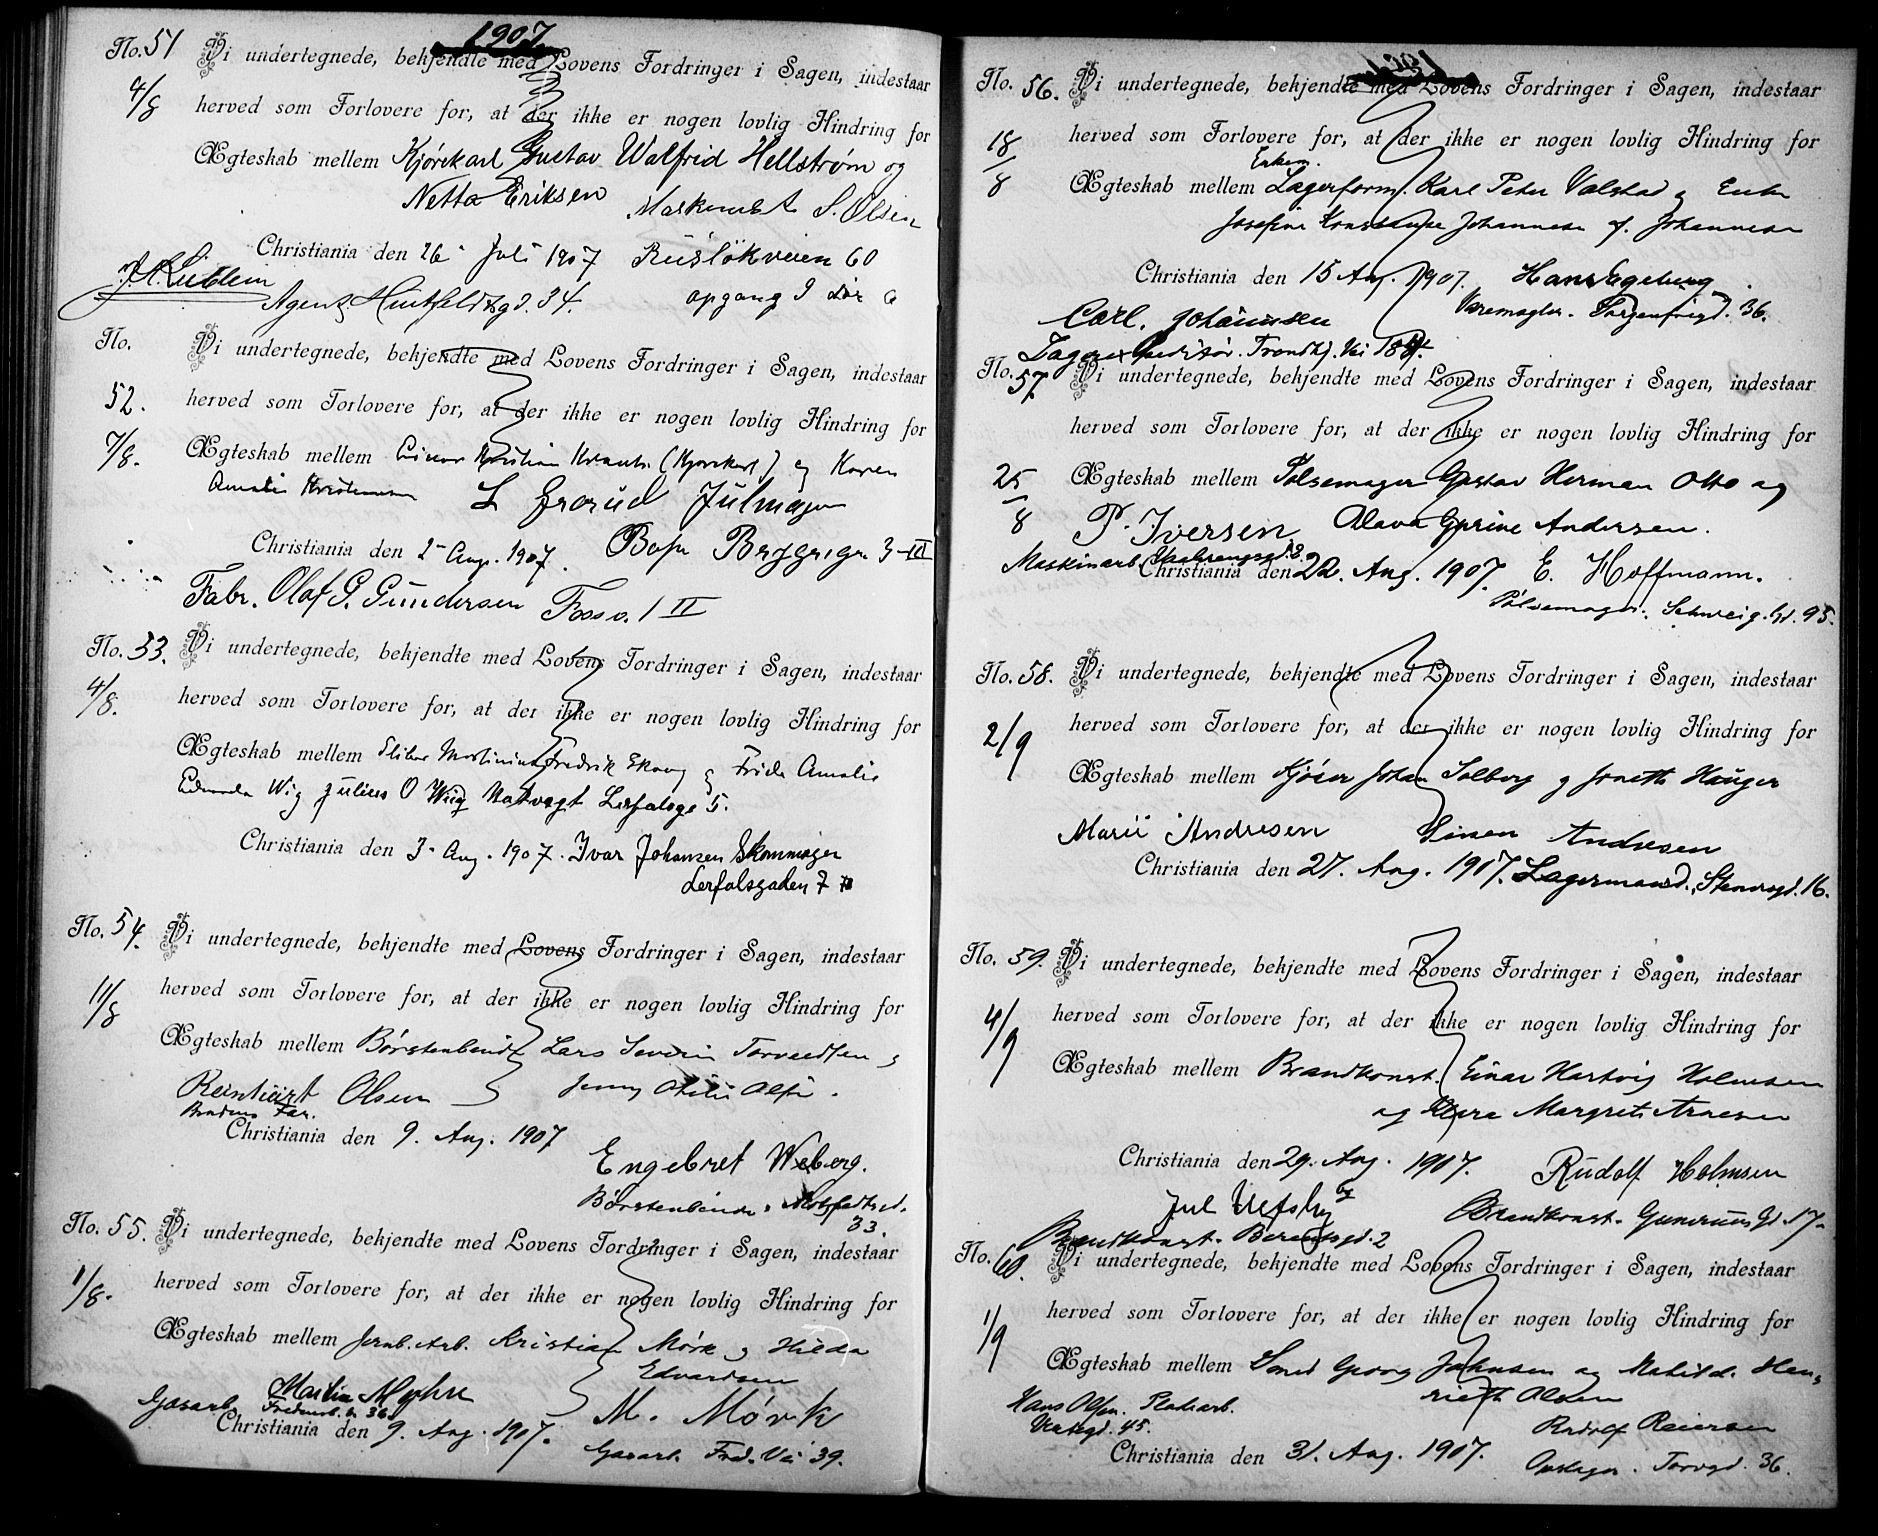 1907
No. 51 Vi undertegnede, bekjendte med Lovens Fordringer i Sagen, indestaar
4/8 herved som Forlovere for, at der ikke er nogen lovlig Hindring for
Ægteskab mellem Kjørekarl Gustav Walfrid Hellstrøm og
Netta Eriksen S. Olsen
Christiania den 26 Juli 1907 Rusløkveien 60
Agent Huitfeldtsgd. 34. opgang 9 dør
No. Vi undertegnede, bekjendte med Lovens Fordringer i Sagen, indestaar
52. herved som Forlovere for, at der ikke er nogen lovlig Hindring for
7/8. Ægteskab mellem Kristian (Kjørekarl) og Karen
Amalie Kristensen L Grorud Julmager
Christiania den 2 Aug. 1907. Bopæ Bryggerigr. 3-III
Fabr. Olaf G. Gundersen Fossv. 1 II
No. 53. Vi undertegnede, bekjendte med Lovens Fordringer i Sagen, indestaar
4/8. herved som Forlovere for, at der ikke er nogen lovlig Hindring for
Ægteskab mellem Sliber Martinius Fredrik Skaug og Frida Amalie
Edvarda Wig Julius O Wiig Natvagt Lerfalsge 5.
Christiania den 3 Aug. 1907. Ivar Johansen Skommager
Lerfalsgaden 7
No. 54. Vi undertegnede, bekjendte med Lovens Fordringer i Sagen, indestaar
11/8 herved som Forlovere for, at der ikke er nogen lovlig Hindring for
Ægteskab mellem Børstenbinder Lars Severin Torvaldsen og
Reinhart Olsen Jenny Otilie Olsen.
Brudens Far.
Christiania den 9. Aug. 1907
Engebret Weberg.
Børstenbinder
33.
No. 55. Vi undertegnede, bekjendte med Lovens Fordringer i Sagen, indestaar
1/8. herved som Forlovere for, at der ikke er nogen lovlig Hindring for
Ægteskab mellem Jernb. Arb. Kristian Mørk og Hilda
Edvardsen
Gasarb. Martin Myhre M. Mørk
Fredensb. V. 36
Christiania den 9. Aug. 1907. Gasarb. Fred. Vei 39.
No. 56. Vi undertegnede, bekjendte med Lovens Fordringer i Sagen, indestaar
18/8 herved som Forlovere for, at der ikke er nogen lovlig Hindring for
Enkem.
Ægteskab mellem Lagerform. Karl Peter Valstad og Enke
Josefine Johannesen f. Johannesen
Christiania den 15 Aug. 1907. Hans Egeberg
Carl. Johannsen Varemægler. Sorgenfrigd. 36.
Lagerexpeditør. Trondhj. Vei
No. 57. Vi undertegnede, bekjendte med Lovens Fordringer i Sagen, indestaar
herved som Forlovere for, at der ikke er nogen lovlig Hindring for
25/8 Ægteskab mellem Pølsemager Gustav Herman Otto og
P. Iversen Gurine Andersen.
Maskinarb.
Christiania den 22. Aug. 1907. E. Hoffmann.
Pølsemager. Schweig. Gd. 95.
No. 58. Vi undertegnede, bekjendte med Lovens Fordringer i Sagen, indestaar
2/9 herved som Forlovere for, at der ikke er nogen lovlig Hindring for
Ægteskab mellem Kjører Johan Solberg og Hauger
Marie Andresen Simen Andresen
Christiania den 27. Aug. 1907. Lagermand., Stenersgd. 16.
No. 59. Vi undertegnede, bekjendte med Lovens Fordringer i Sagen, indestaar
4/9 herved som Forlovere for, at der ikke er nogen lovlig Hindring for
Ægteskab mellem Brandkonst. Einar Hartvig Holmsen
og Klara Margrete Arnesen
Christiania den 29. Aug. 1907. Rudolf Holmsen
Jul Brandkonst. Gd. 17.
Brandkonst. 2
No. 60. Vi undertegnede, bekjendte med Lovens Fordringer i Sagen, indestaar
1/9 herved som Forlovere for, at der ikke er nogen lovlig Hindring for
Ægteskab mellem Smed Georg Johnsen og Matilde Hen-
riette Olsen
Hans Olsen. Pladsarb. Rudolf Reiersen
45.
Christiania den 31. Aug. 1907. Opslager. Torvgd. 36.